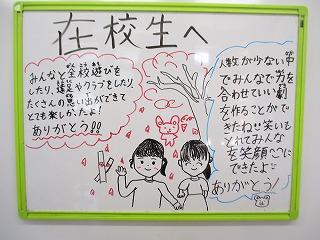 在校生へ
みんなと全校遊びを
したり、遠足やクラブをしたり、
たくさんの思い出ができて
とても楽しかったよ!
ありがとう!!
人数が少ない中
でみんなで力を
合わせていい劇
を作ることがで
きたね笑いも
とれてみんな
を笑顔に
できたよ
ありがとう!